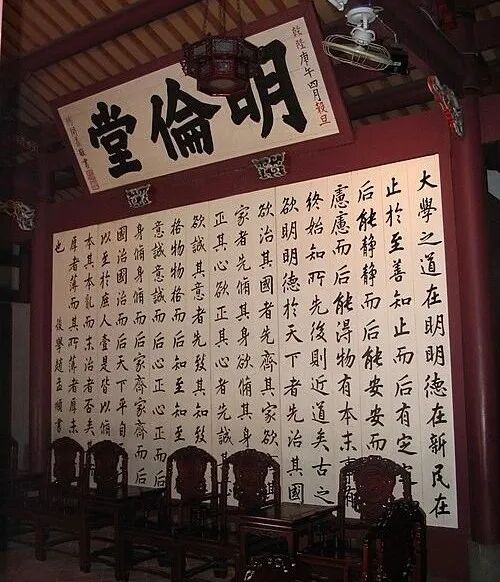 乾隆庚午四月穀旦
明倫堂
大學之道在明明德在新民在
止於至善知止而后有定定
后能靜靜而后能安安而
慮慮而后能得物有本末事
終始知所先後則近道矣古之
欲明明德於天下者先治其國
欲治其國者先齊其家欲
家者先脩其身欲脩其身
正其心欲正其心者先誠其
欲誠其意者先致其知致
格物物格而后知至知至
意誠意誠而后心正心正而后
身脩身脩而后家齊家齊而后
國治國治而后天下平自
以至於庶人壹是皆以脩
本其本亂而末治者否矣
厚者薄而其所薄者厚未
也 後學趙孟頫書